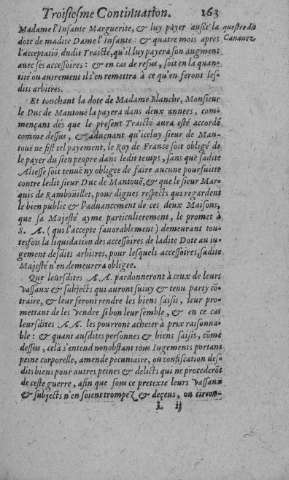 Troisiesme Continuation. 163
Madame l'Infante Marguerite, & luy payer aussi la
dote de madite Dame l'infante: & quatre mois apres
l'acceptatiõ dudit Traicté, qu'il luy payera son augment
avec ses accessoires: & en cas de refus, soit en la quanti-
té ou autrement ils s'en remettra à ce qu'en seront les-
dits arbitres.
Et touchant la dote de Madame Blanche, Monsieur
le Duc de Mantouë la payera dans deux années, com-
mençant dés que le present Traicté aura esté accordé
comme dessus, & aduenant qu'iceluy sieur de Man-
touë ne fist tel payement, le Roy de France soit obligé de
le payer du sien propre dans ledit temps, sans que sadite
Altesse soit tenuë ny obligée de faire aucune poursuitte
contre ledit sieur Duc de Mantouë, & que le sieur Mar-
quis de Rambouillet, pour dignes respects que regardent
le bien public & l'aduancement de ces deux Maisons,
que sa Majesté ayme particulierement, le promet à
S. A. (qui l'accepte favorablement) demeurant tou-
tesfois la liquidation des accessoires de ladite Dote au iu-
gement desdits arbitres, pour lesquels accessoires sadite
Majesté n'en demeurera obligée.
Que leursdites A A. pardonneront à ceux de leurs
vassaux & subjects qui auront suivy & tenu party cõ-
traire, & leur feront rendre les biens saisis, leur pro-
mettant de les vendre si bon leur semble, & en ce cas
leursdites A A. les pourront acheter à prix raisonna-
ble: & quant ausdites personnes & biens saisis, cõme
dessus, cela s'entend nonobstant tous Iugements portans
peine corporelle, amende pecuniaire, ou confiscation des-
dits biens pour autres peines & delicts qui ne procederõt
de ceste guerre, afin que sous ce pretexte leurs vassaux
& subjects n'en soient trompez & deçeus, ou circon-
L ij